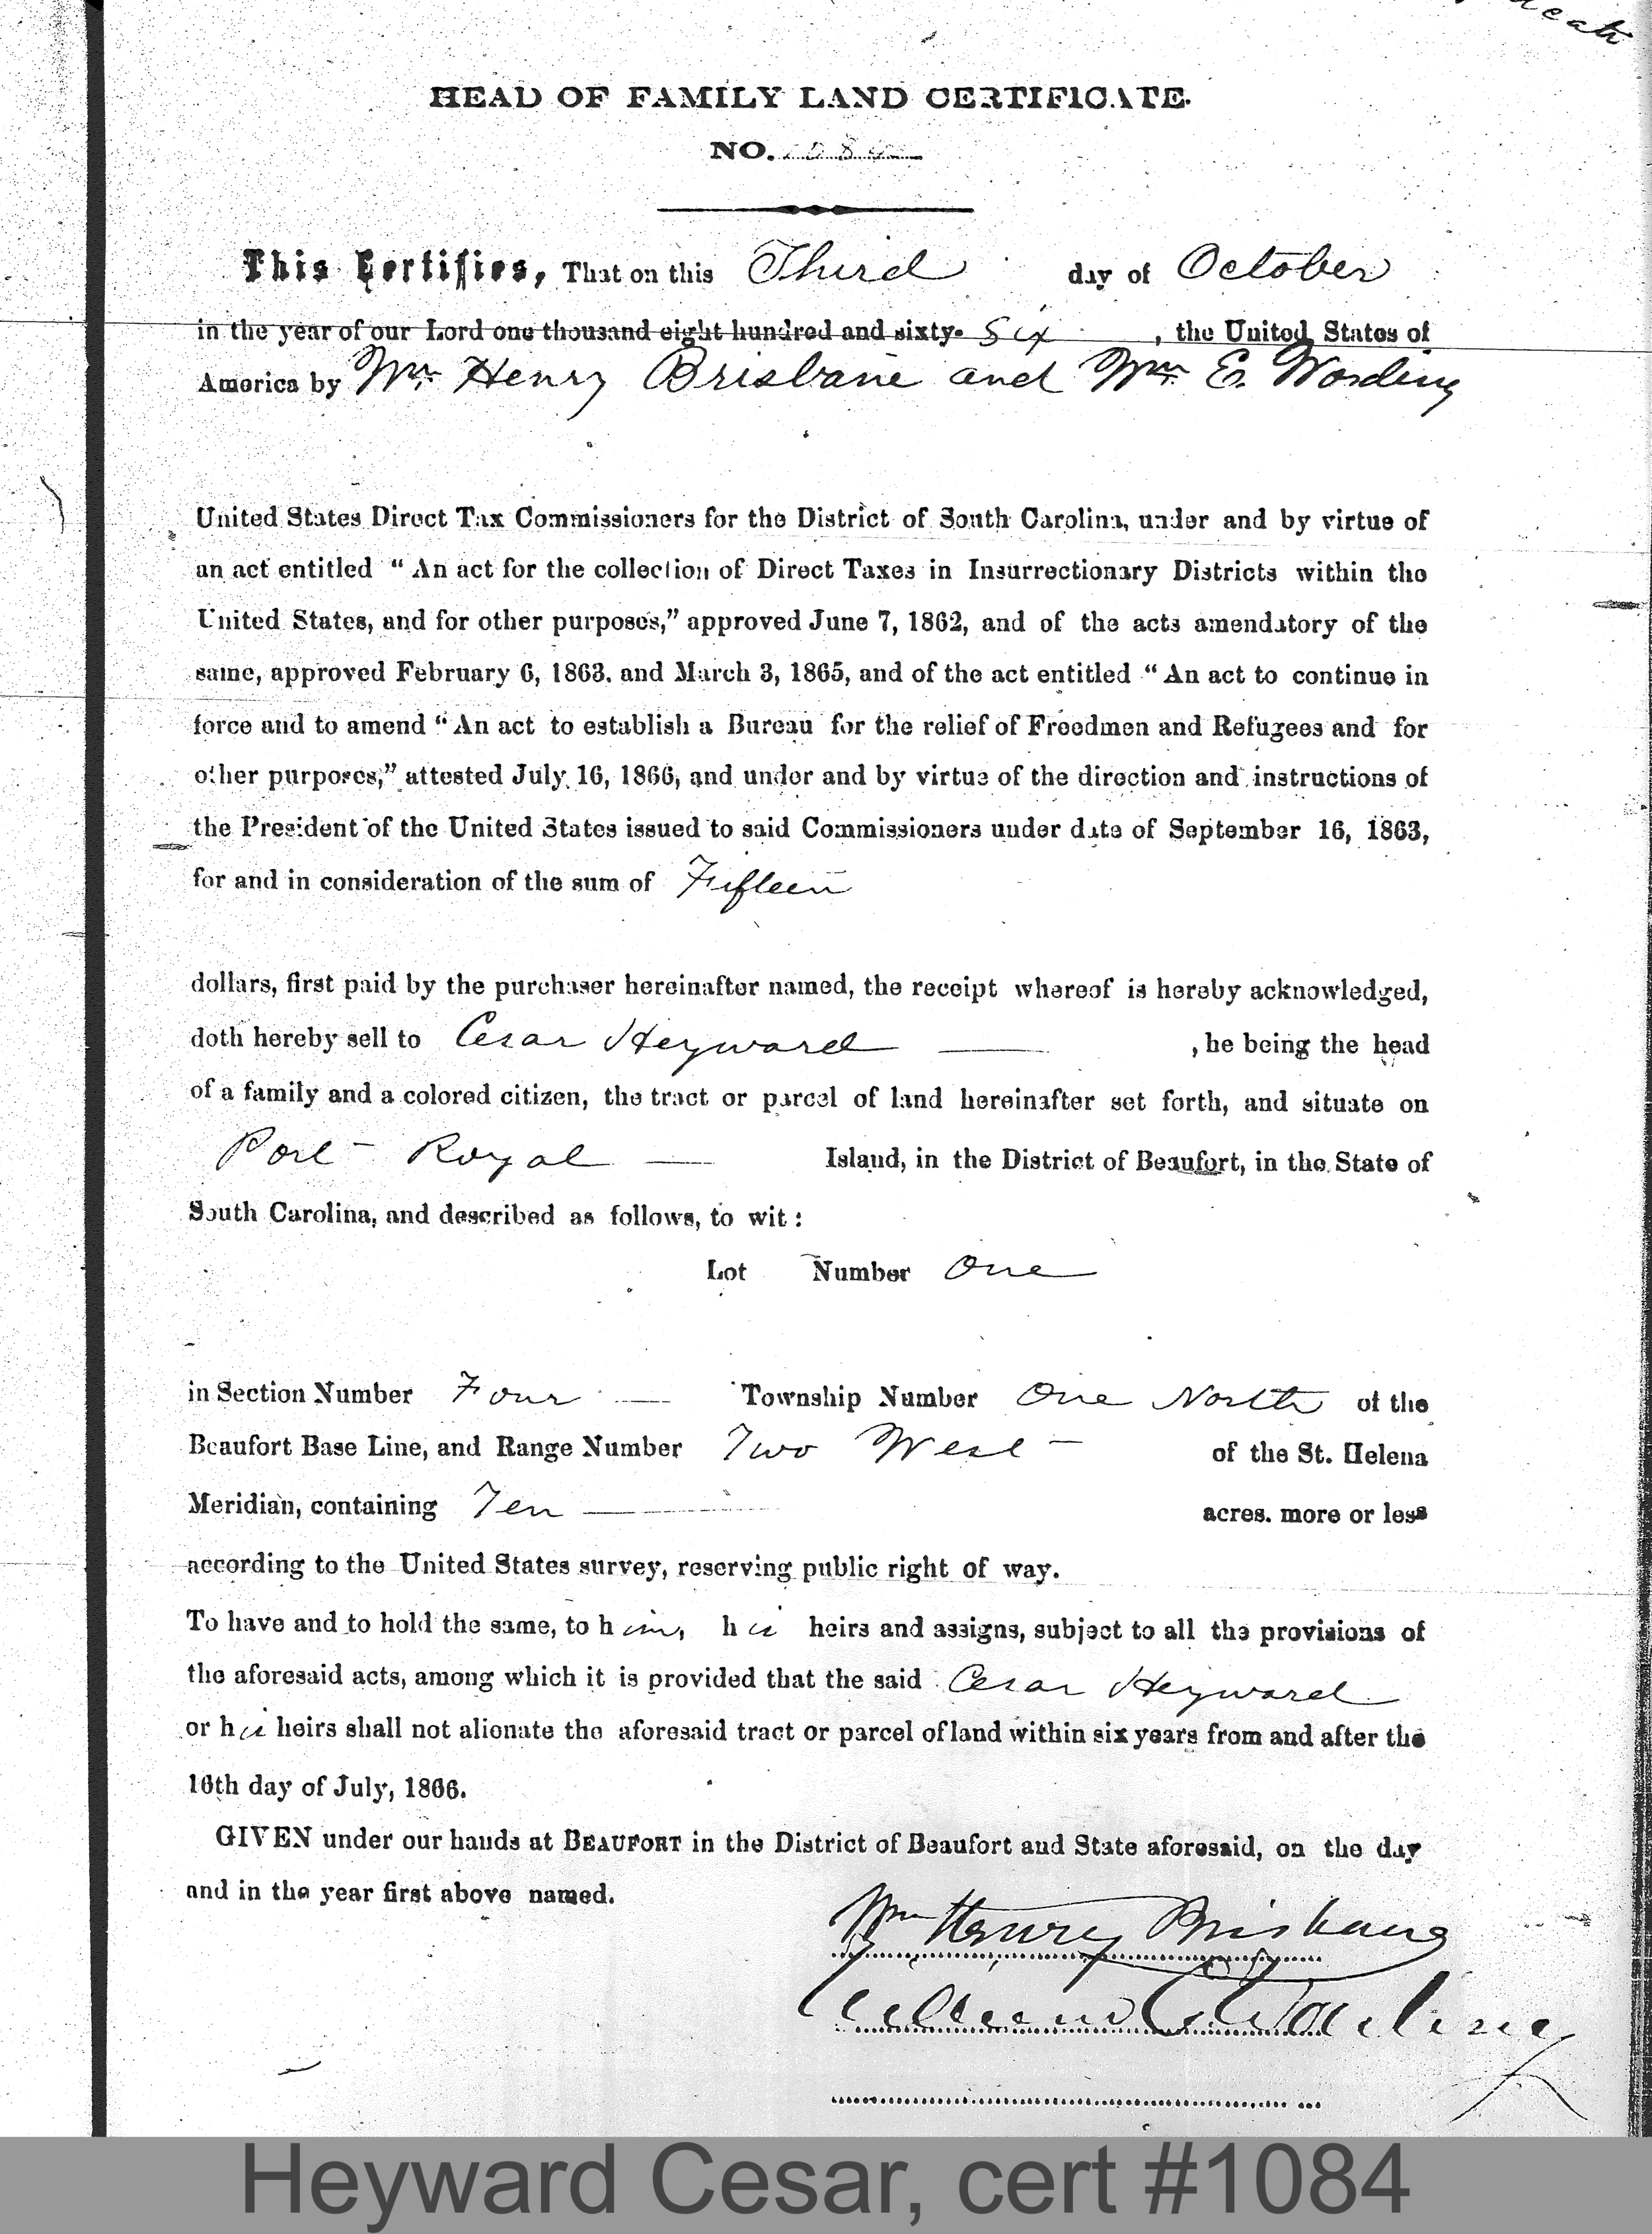 HEAD OF FAMILY LAND CERTIFICATE.
NO. 1084
This Certifies, That on this Third day of October
in the year of our Lord one thousand eight hundred and sixty- six , the United States of
America by Wm. Henry Brisbane and Wm. E. Wording
United States Direct Tax Commissioners for the District of South Carolina, under and by virtue of
an act entitled “ An act for the collection of Direct Taxes in Insurrectionary Districts within the
United States, and for other purposes,” approved June 7, 1862, and of the acts amendatory of the
same, approved February 6, 1863. and March 3, 1865, and of the act entitled “ An act to continue in
force and to amend “ An act to establish a Bureau for the relief of Freedmen and Refugees and for
other purposes,” attested July 16, 1866, and under and by virtue of the direction and instructions of
the President of the United States issued to said Commissioners under date of September 16, 1863,
for and in consideration of the sum of Fifteen
dollars, first paid by the purchaser hereinafter named, the receipt whereof is hereby acknowledged,
doth hereby sell to Cesar Heyward , he being the head
of a family and a colored citizen, the tract or parcel of land hereinafter set forth, and situate on
Port Royal Island, in the District of Beaufort, in the State of
South Carolina, and described as follows, to wit :
Lot Number One
in Section Number Four Township Number One North of the
Beaufort Base Line, and Range Number Two West of the St. Helena
Meridian, containing Ten acres. more or less
according to the United States survey, reserving public right of way.
To have and to hold the same, to him, his heirs and assigns, subject to all the provisions of
the aforesaid acts, among which it is provided that the said Cesar Heyward
or his heirs shall not alienate the aforesaid tract or parcel of land within six years from and after the
16th day of July, 1866.
GIVEN under our hands at BEAUFORT in the District of Beaufort and State aforesaid, on the day
and in the year first above named.
Wm Henry Brisbane
William E. Wording
Heyward Cesar, cert #1084